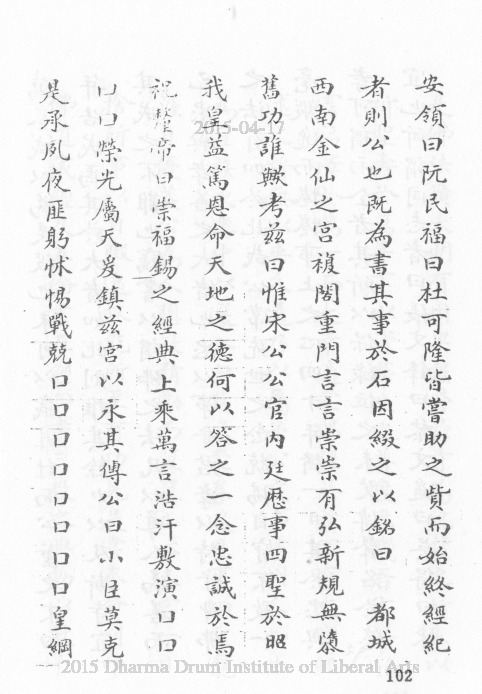 安領曰阮民福曰杜可隆皆嘗助之貲而始終經紀
者則公也既為書其事於石因綴之以銘曰 都城
西南金仙之宮複閣重門言言崇崇有弘新規無隳
舊功誰歟考茲曰惟宋公公官內廷歷事四聖於昭
我皇益篤恩命天地之德何以答之一念忠誠於焉
祝釐帝曰崇福錫之經典上乘萬言浩汗敷演口口
口口榮光屬天爰鎮茲宮以永其傳公曰小臣莫克
是承夙夜匪躬怵惕戰兢口口口口口口口口皇綱
2015-04-17
2015 Dharma Drum Institute of Liberal Arts
102